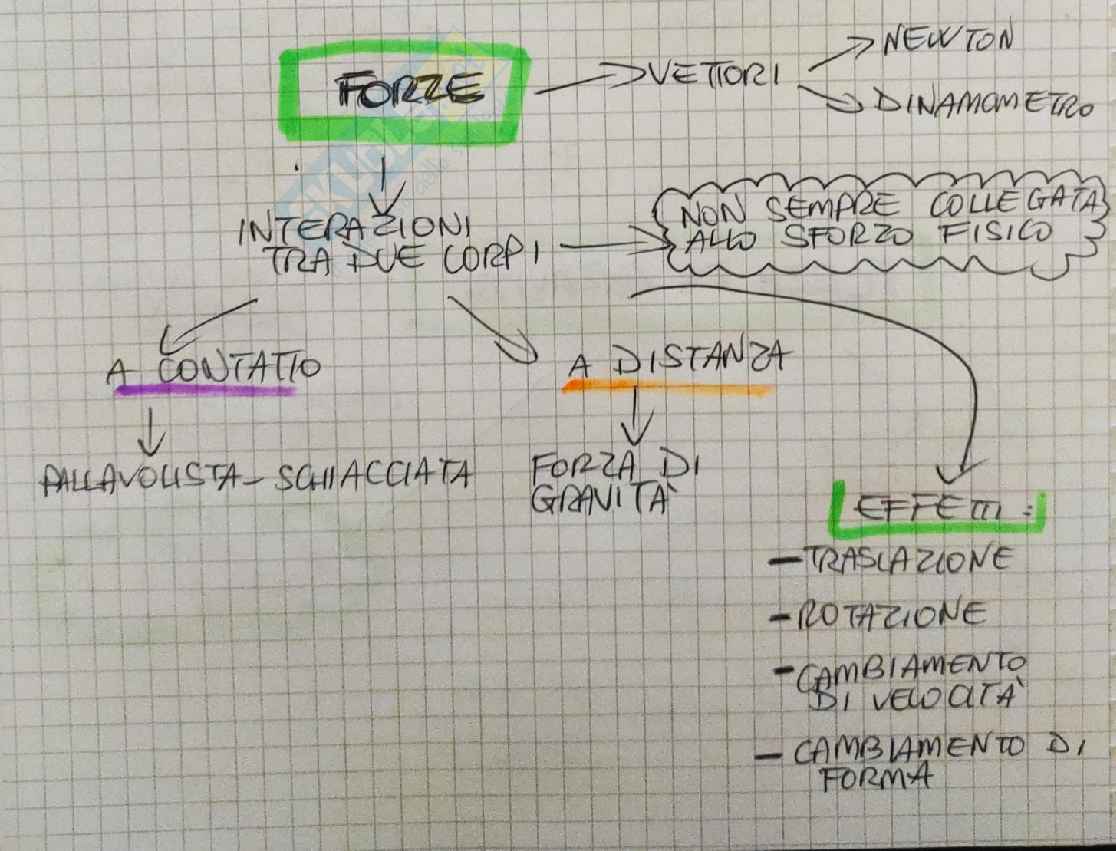 FORZE
VETTORI
NEWTON
DINAMOMETRO
INTERAZIONI
TRA DUE CORPI
NON SEMPRE COLLEGATA
ALLO SFORZO FISICO
A CONTATTO
A DISTANZA
PALLAVOLISTA - SCHIACCIATA
FORZA DI
GRAVITÀ
EFFETTI:
- TRASLAZIONE
- ROTAZIONE
- CAMBIAMENTO
DI VELOCITÀ
- CAMBIAMENTO DI
FORMA